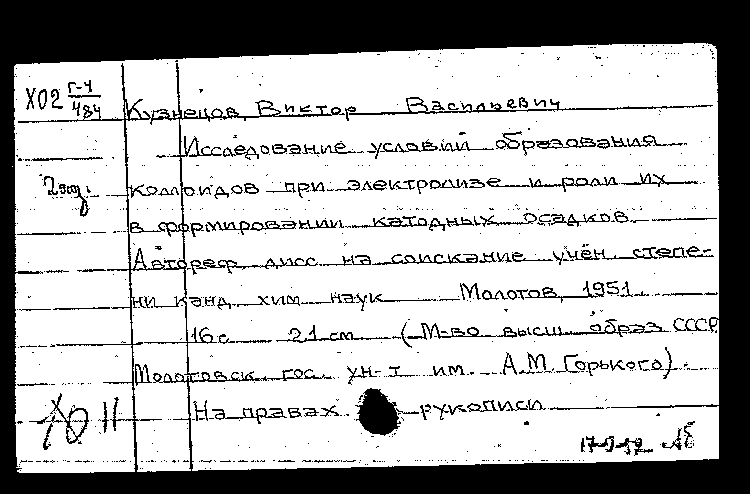 Х02 Г-4/484
Кузнецов, Виктор Васильевич
Исследование условий образования
2 экз. коллоидов при электролизе и роли их
в формировании катодных осадков.
Автореф. дисс. на соискание учён. степе-
ни канд. хим. наук Молотов, 1951.
16 с. 21 см. (М-во высш. образ. СССР
Молотовск. гос. ун-т им. А.М. Горького).
На правах рукописи